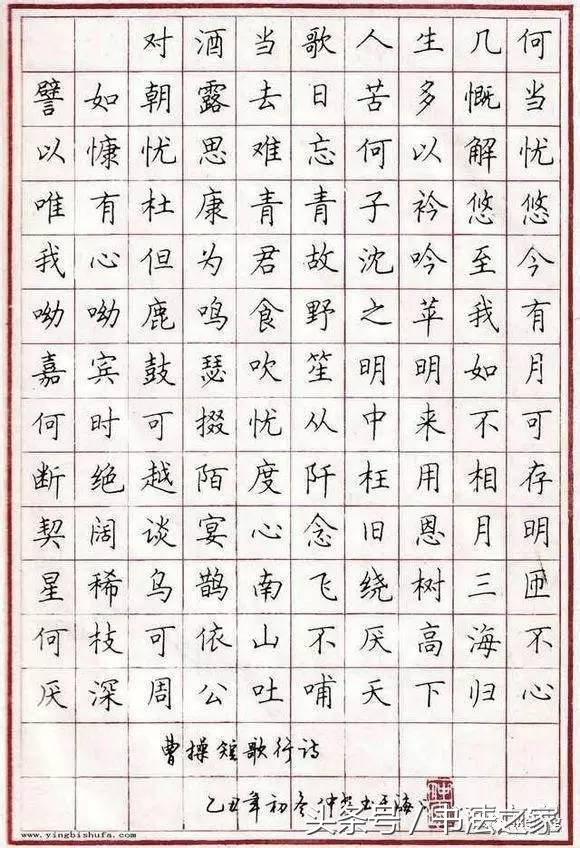 对酒当歌人生几何
譬如朝露去日苦多慨当
以慷忧思难忘何以解忧
唯有杜康青青子衿悠悠
我心但为君故沈吟至今
呦呦鹿鸣食野之苹我有
嘉宾鼓瑟吹笙明明如月
何时可掇忧从中来不可
断绝越陌度阡枉用相存
契阔谈宴心念旧恩月明
星稀乌鹊南飞绕树三匝
何枝可依山不厌高海不
厌深周公吐哺天下归心
曹操短歌行诗
乙丑年初冬仲书于海
www.yingbishufa.com
头条号/书法之家